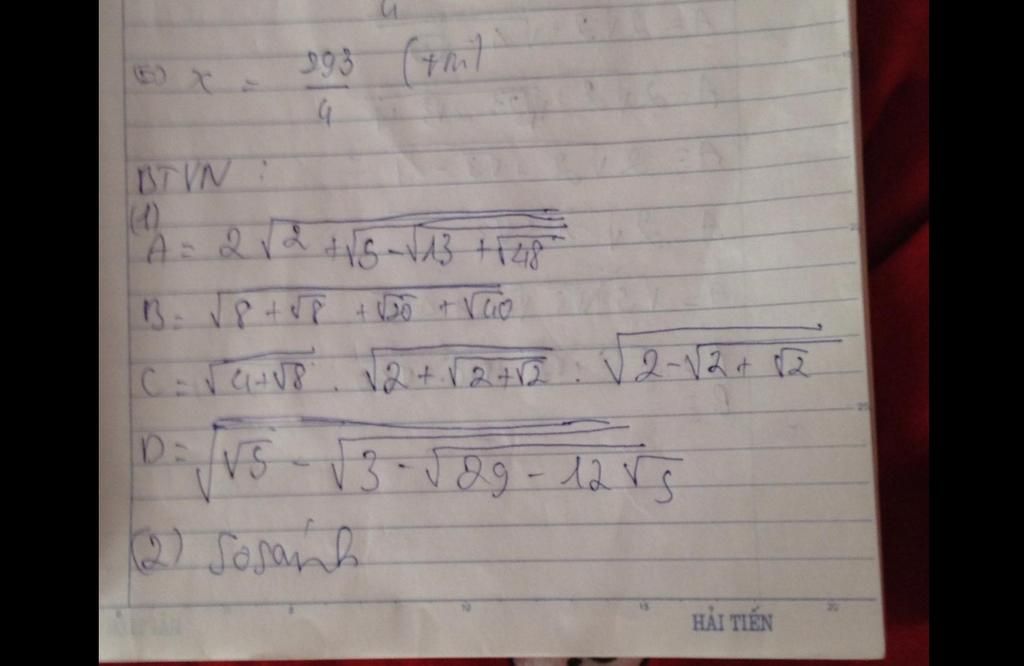 (5) x = 293/4 (+m)
BTVN :
(1)
A = 2√(2 + √(5 - √(13 + √48)))
B = √(8 + √8 + √20 + √40)
C = √(4 + √8) . √(2 + √(2 + √2)) . √(2 - √(2 + √2))
D = √(√5 - √(3 - √(29 - 12√5)))
(2) So sánh
HẢI TIẾN